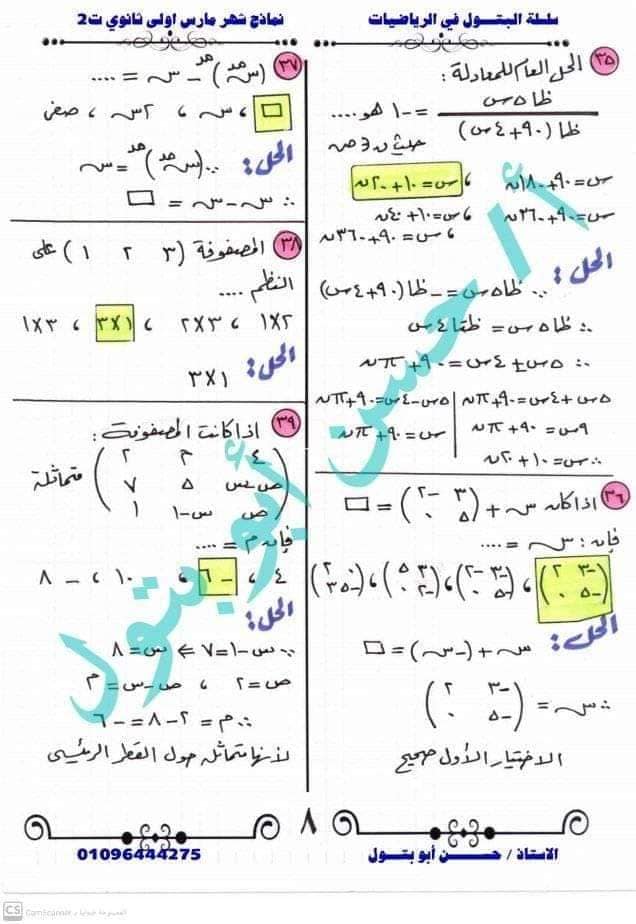 سلسلة البتول في الرياضيات
نماذج شهر مارس اولى ثانوي ت2
٣٥ الحل العام للمعادلة :
ظا ٥ س
ظا (٩٠ + ٤ س)
= -١ هو ....
حيث ن ∈ ص
س = ٩٠ + ١٨٠ ن ، س = ١٠ + ٢٠ ن
س = ٩٠ + ٣٦٠ ن ، س = ١٠ + ٤٠ ن
، س = ٩٠ + ٣٦٠ ن
الحل :
∵ ظا ٥ س = - ظا (٩٠ + ٤ س)
∴ ظا ٥ س = ظتا ٤ س
∴ ٥ س ± ٤ س = ٩٠ + π ن
٥ س + ٤ س = ٩٠ + π ن | ٥ س - ٤ س = ٩٠ + π ن
٩ س = ٩٠ + π ن | س = ٩٠ + π ن
∴ س = ١٠ + ٢٠ ن
٣٦ اذا كان س + ( ٣ -٢
٥ ٠ ) = □
فإن : س = ....
( -٣ ٢ ) ، ( -٣ -٢ ) ، ( ٣ ٥ ) ، ( ٠ ٢ )
( -٥ ٠ ) ( -٥ ٠ ) ( -٢ ٠ ) ( -٥ ٣ )
الحل :
∵ س + (-س) = □
∴ س = ( -٣ ٢
-٥ ٠ )
الاختيار الأول صحيح
٣٧ (س مد) مد - س = ....
□ ، س ، ٢ س ، صفر
الحل :
∵ (س مد) مد = س
∴ س - س = □
٣٨ المصفوفة ( ٣ ٢ ١ ) على
النظم ....
١×٢ ، ٢×٣ ، ٣×١ ، ١×٣
الحل :
٣×١
٣٩ اذا كانت المصفوفة :
( ٤ م ٢
ص-س ٥ ٧
ص س-١ ١ ) متماثلة
فإن م = ....
٤ ، -٦ ، ١٠ ، -٨
الحل :
∵ س - ١ = ٧ ⇐ س = ٨
ص = ٢ ، ص - س = م
∴ م = ٢ - ٨ = -٦
لأنها متماثلة حول القطر الرئيسى
أ/حسن أبو بتول
٨
الاستاذ / حسن أبو بتول
01096444275
CS CamScanner